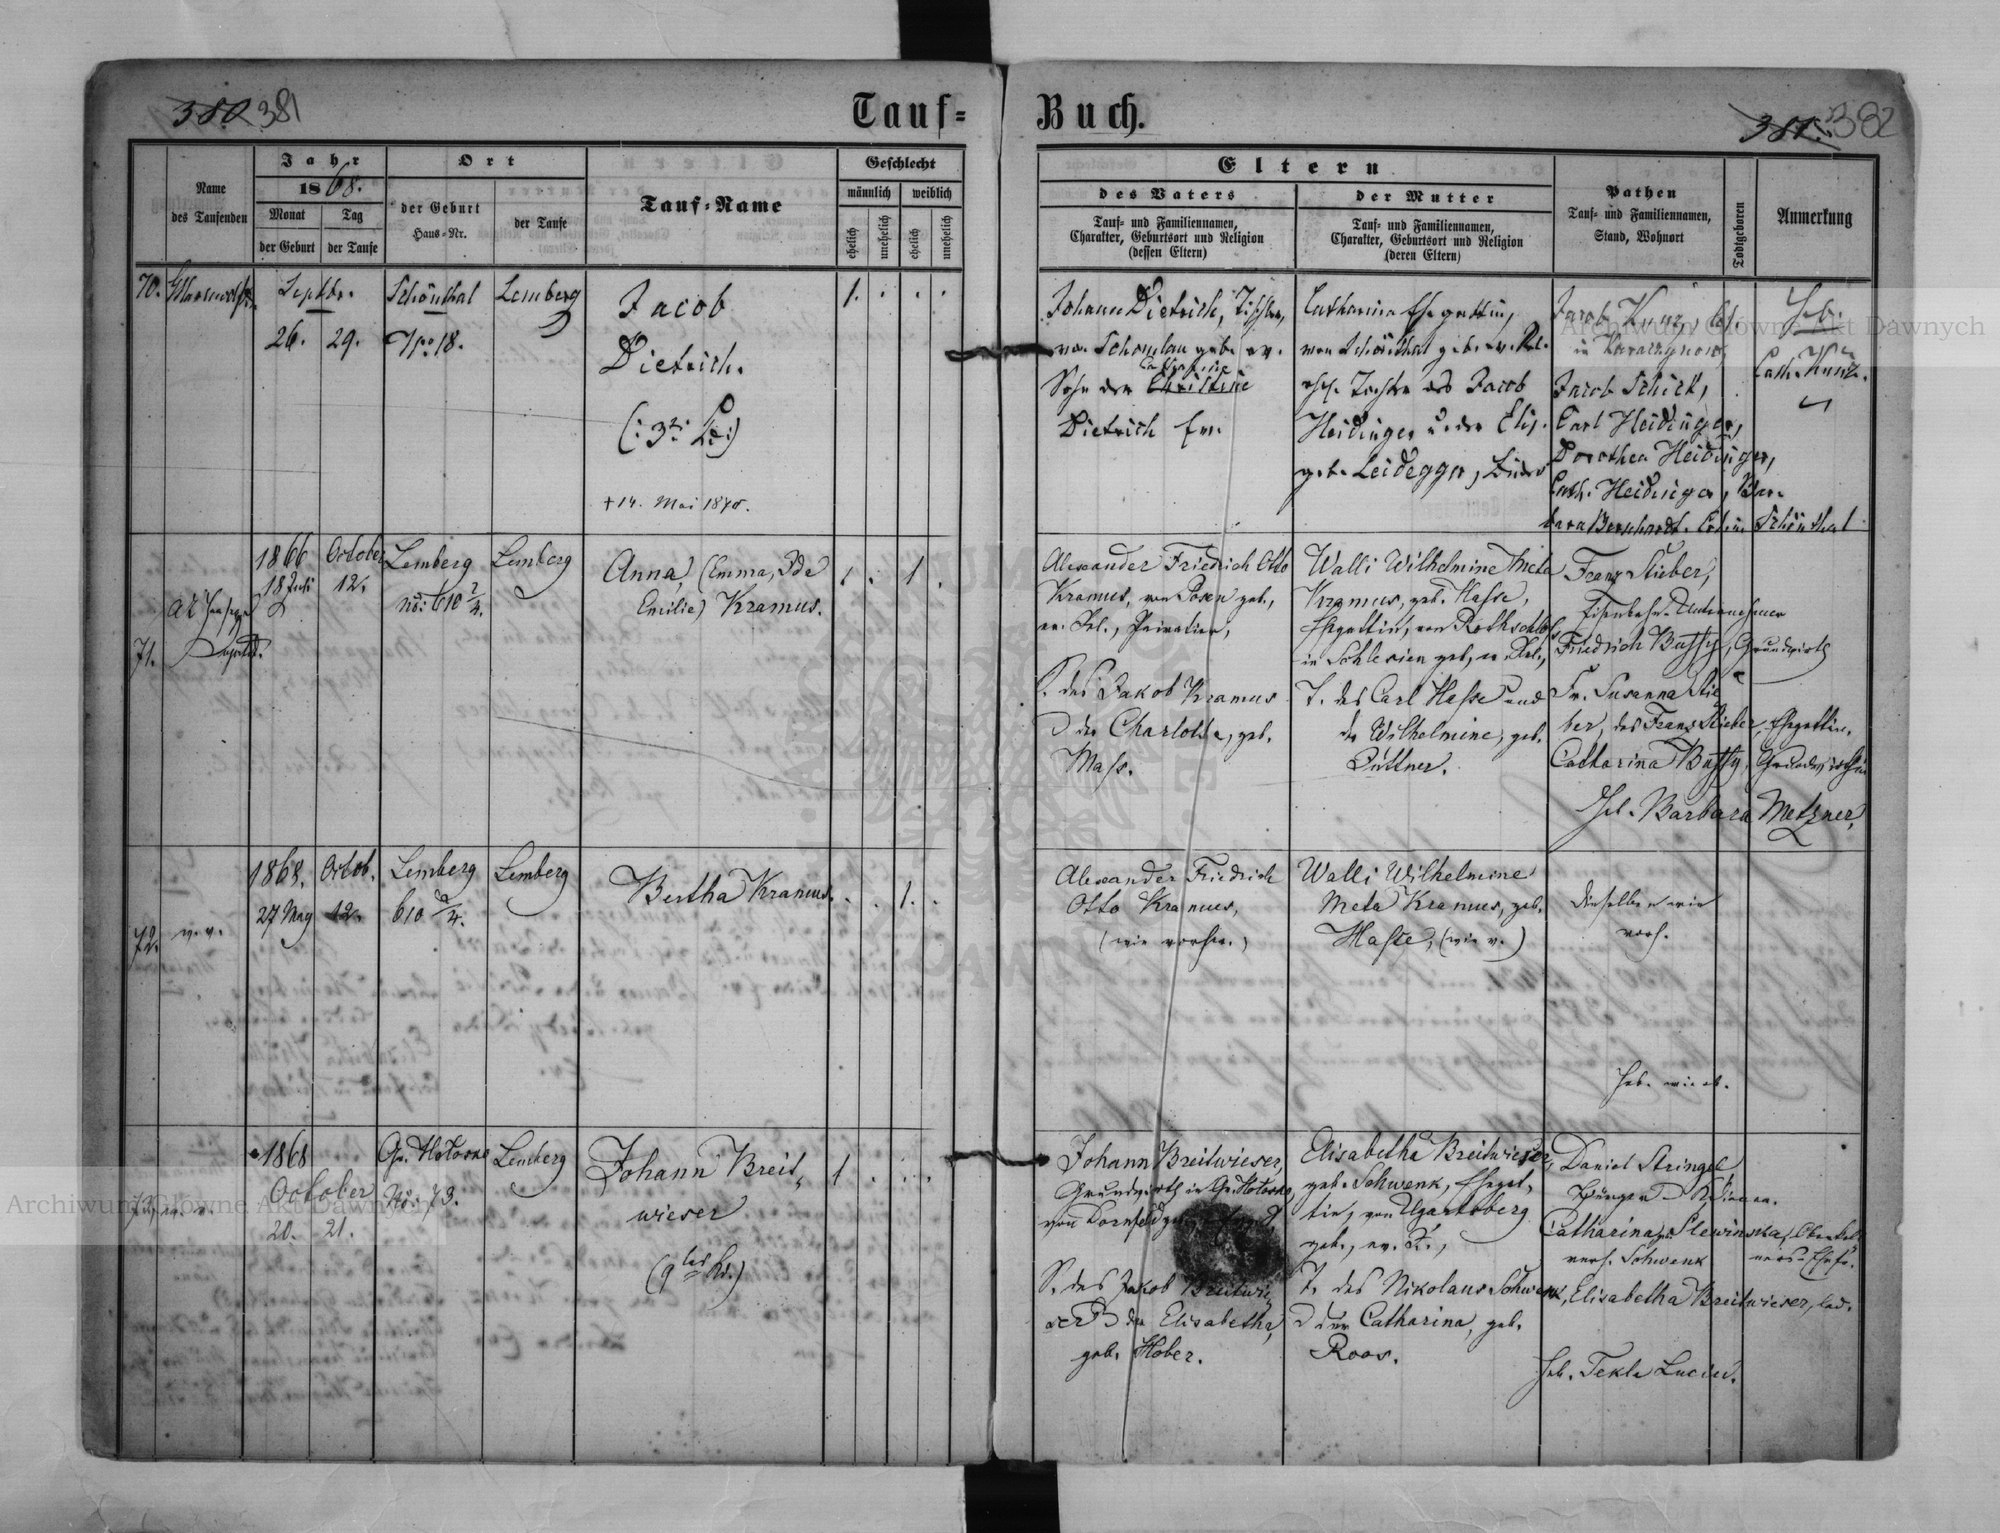 380. 381
Tauf= Buch.
381. 382
Name
des Taufenden
Jahr
1868.
Monat
der Geburt
Tag
der Taufe
Ort
der Geburt
Haus=Nr.
der Taufe
Tauf=Name
Geschlecht
männlich
weiblich
ehelich
unehelich
ehelich
unehelich
Eltern
des Vaters
Tauf= und Familiennamen,
Charakter, Geburtsort und Religion
(dessen Eltern)
der Mutter
Tauf= und Familiennamen,
Charakter, Geburtsort und Religion
(deren Eltern)
Pathen
Tauf= und Familiennamen,
Stand, Wohnort
Todtgeboren
Anmerkung
70.
Septbr.
26. 29.
Schönthal
No. 18.
Lemberg
Jacob
Dietrich.
+ 14. Mai 1870.
1. . . .
Johann Dietrich,
Sohn der Christine
Catharine
Dietrich ev.
Catharina Ehegattin,
von Schönthal geb. ev. Rel.
ehl. Tochter des Jacob
Heidinger u. der Elis.
geb. Leidegger,
Jacob Kunz,
Jacob Schick,
Carl Heidinger,
Dorothea Heidinger,
Cath. Heidinger, Bar-
bara Bernhardt. Schönthal
Heb.
Cath. Kunz.
71.
1866
18 Juli
October
12.
Lemberg
No: 610 2/4.
Lemberg
Anna, (Emma, Ida
Emilie) Kramus.
1. . 1 .
Alexander Friedrich Otto
Kramus, von Posen geb.,
ev. Rel., Privatier,
S. des Jakob Kramus
u der Charlotte, geb.
Mass.
Walli Wilhelmine Meta
Kramus, geb. Hasse,
Ehegattin, von Rothschloss
in Schlesien geb., ev. Rel.,
T. des Carl Hasse und
der Wilhelmine, geb.
Püttner.
Franz Stieber,
Eisenbahn-Unternehmer
Friedrich Bussy, Grundwirth
Fr. Susanna Stie
ber, des Franz Stieber, Ehegattin.
Catharina Bussy, Grundwirthin
Heb. Barbara Metzner,
72.
w. v.
1868.
27 May
Octob.
12.
Lemberg
610 2/4.
Lemberg
Bertha Kramus.
. . 1. .
Alexander Friedrich
Otto Kramus,
(wie vorher.)
Walli Wilhelmine
Meta Kramus, geb.
Hasse, (wie v.)
Dieselben wie
vorh.
Heb. wie ob.
73.
w. v.
1868
October
20. 21.
Gr. Holosko
No. 73.
Lemberg
Johann Breit-
wieser
1 . . .
Johann Breitwieser,
Grundwirth in Gr. Holosko,
von Dornfeld
S. des Jakob Breitwie
ser u der Elisabetha,
geb. Hober.
Elisabetha Breitwieser,
geb. Schwenk, Ehegat-
tin, von Ugartsberg
geb., ev. R.,
T. des Nikolaus Schwenk,
u der Catharina, geb.
Roos.
Daniel Stringel
Catharina Slewinska,
verh. Schwenk
Elisabetha Breitwieser, led.
Heb. Tekla Lucin.
Archiwum Główne Akt Dawnych
Archiwum Główne Akt Dawnych